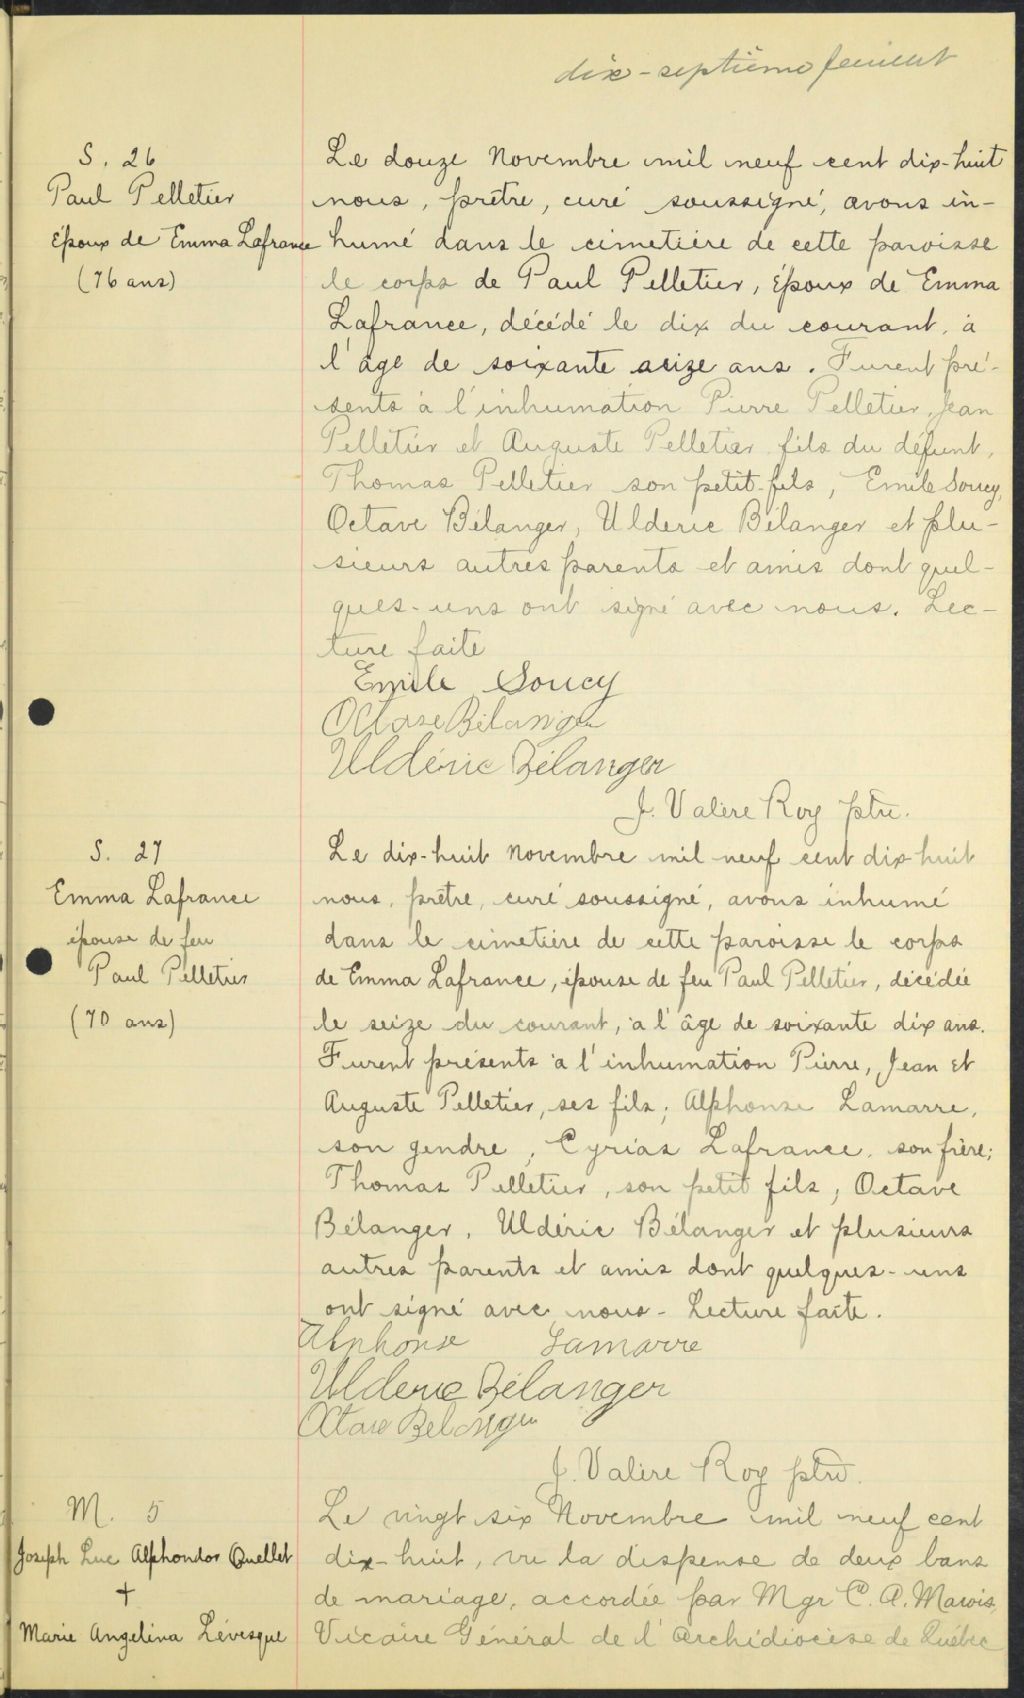 dix-septième feuillet
S. 26
Paul Pelletier
Époux de Emma Lafrance
(76 ans)
Le douze Novembre mil neuf cent dix-huit
nous, prêtre, curé soussigné, avons in-
humé dans le cimetière de cette paroisse
le corps de Paul Pelletier, Époux de Emma
Lafrance, décédé le dix du courant, à
l'âge de soixante seize ans. Furent pré-
sents à l'inhumation Pierre Pelletier, Jean
Pelletier et Auguste Pelletier fils du défunt,
Thomas Pelletier son petit-fils, Emile Soucy,
Octave Bélanger, Ulderic Bélanger et plu-
sieurs autres parents et amis dont quel-
ques-uns ont signé avec nous. Lec-
ture faite
Emile Soucy
Octave Bélanger
Uldéric Bélanger
J. Valère Roy ptre.
S. 27
Emma Lafrance
épouse de feu
Paul Pelletier
(70 ans)
Le dix-huit Novembre mil neuf cent dix huit
nous, prêtre, curé soussigné, avons inhumé
dans le cimetière de cette paroisse le corps
de Emma Lafrance, épouse de feu Paul Pelletier, décédée
le seize du courant, à l'âge de soixante dix ans.
Furent présents à l'inhumation Pierre, Jean et
Auguste Pelletier, ses fils; Alphonse Lamarre,
son gendre, Cyrias Lafrance, son frère;
Thomas Pelletier, son petit fils, Octave
Bélanger, Uldéric Bélanger et plusieurs
autres parents et amis dont quelques-uns
ont signé avec nous - Lecture faite.
Alphonse Lamarre
Ulderic Bélanger
Octave Belanger
J. Valère Roy ptre.
M. 5
Joseph Luc Alphondor Ouellet
+
Marie Angelina Lévesque
Le vingt six Novembre mil neuf cent
dix-huit, vu la dispense de deux bans
de mariage, accordée par Mgr C. A. Marois,
Vicaire Général de l'Archidiocèse de Québec